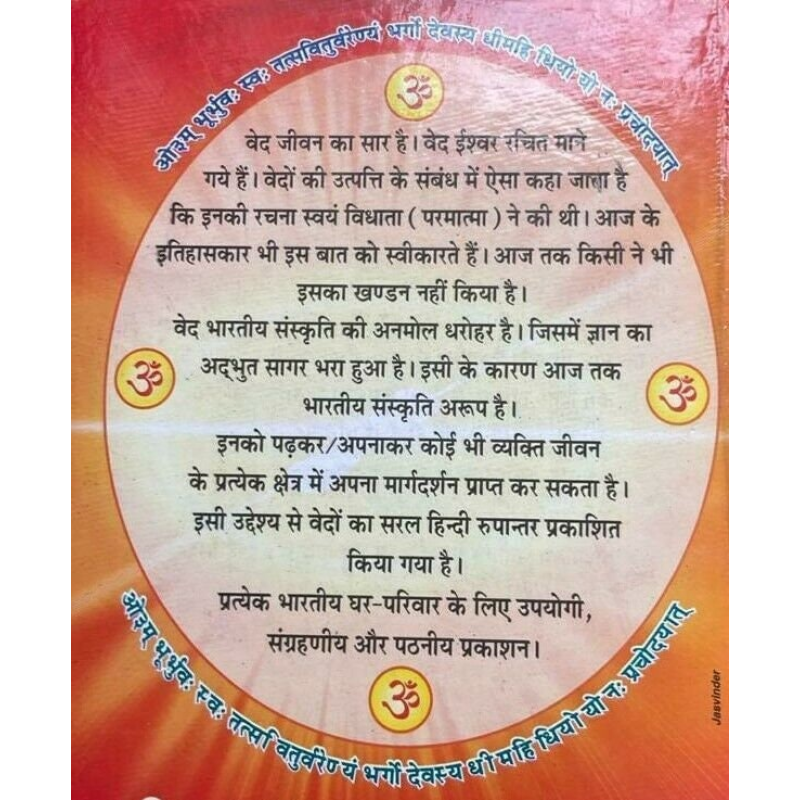 ओ३म् भूर्भुवः स्वः तत्सवितुर्वरेण्यं भर्गो देवस्य धीमहि धियो यो नः प्रचोदयात्
ॐ
वेद जीवन का सार है। वेद ईश्वर रचित माने
गये हैं। वेदों की उत्पत्ति के संबंध में ऐसा कहा जाता है
कि इनकी रचना स्वयं विधाता ( परमात्मा ) ने की थी। आज के
इतिहासकार भी इस बात को स्वीकारते हैं। आज तक किसी ने भी
इसका खण्डन नहीं किया है।
वेद भारतीय संस्कृति की अनमोल धरोहर है। जिसमें ज्ञान का
ॐ अद्भुत सागर भरा हुआ है। इसी के कारण आज तक ॐ
भारतीय संस्कृति अरूप है।
इनको पढ़कर/अपनाकर कोई भी व्यक्ति जीवन
के प्रत्येक क्षेत्र में अपना मार्गदर्शन प्राप्त कर सकता है।
इसी उद्देश्य से वेदों का सरल हिन्दी रुपान्तर प्रकाशित
किया गया है।
प्रत्येक भारतीय घर-परिवार के लिए उपयोगी,
संग्रहणीय और पठनीय प्रकाशन।
ॐ
ओ३म् भूर्भुवः स्वः तत्सवितुर्वरेण्यं भर्गो देवस्य धीमहि धियो यो नः प्रचोदयात्
Jasvinder